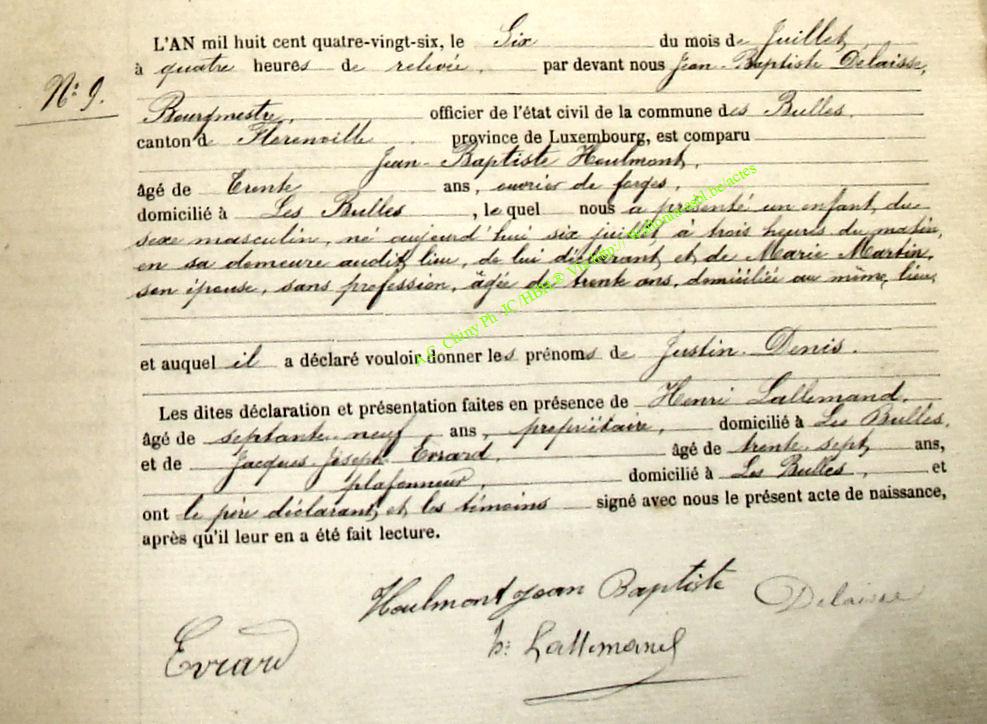 L'AN mil huit cent quatre-vingt-six, le Six du mois de Juillet,
à quatre heures de relevée, par devant nous Jean-Baptiste Delaisse,
N° 9.
Bourgmestre, officier de l'état civil de la commune des Bulles,
canton de Florenville, province de Luxembourg, est comparu
Jean-Baptiste Houlmont,
âgé de trente ans, ouvrier de forges,
domicilié à Les Bulles, lequel nous a présenté un enfant du
sexe masculin, né aujourd'hui six juillet, à trois heures du matin,
en sa demeure audit lieu, de lui déclarant et de Marie Martin,
son épouse, sans profession, âgée de trente ans, domiciliée au même lieu,
et auquel il a déclaré vouloir donner les prénoms de Justin Denis.
Les dites déclaration et présentation faites en présence de Henri Lallemand,
âgé de septante-neuf ans, propriétaire, domicilié à Les Bulles,
et de Jacques-Joseph Evrard, âgé de trente-sept ans,
plafonneur, domicilié à Les Bulles, et
ont le père déclarant, et les témoins signé avec nous le présent acte de naissance,
après qu'il leur en a été fait lecture.
Houlmont Jean Baptiste Delaisse
Evrard h: Lallemand
A.C. Chiny Ph JC /HBH ©